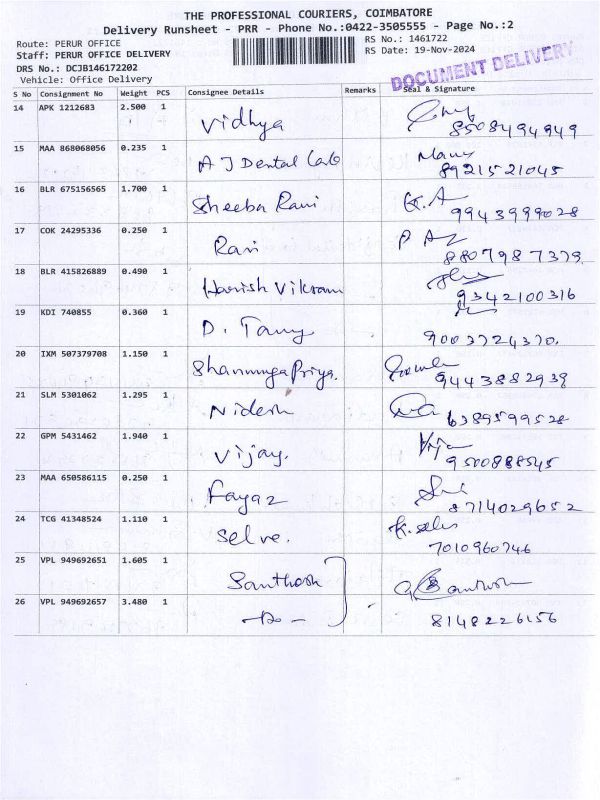 THE PROFESSIONAL COURIERS, COIMBATORE
Delivery Runsheet - PRR - Phone No.:0422-3505555 - Page No.:2
Route: PERUR OFFICE RS No.: 1461722
Staff: PERUR OFFICE DELIVERY RS Date: 19-Nov-2024
DRS No.: DCJB146172202
Vehicle: Office Delivery
DOCUMENT DELIVERY
S No Consignment No Weight PCS Consignee Details Remarks Seal & Signature
14 APK 1212683 2.500 1 Vidhya
8508494949
15 MAA 868068056 0.235 1 A J Dental Care
8921521045
16 BLR 675156565 1.700 1 Sheeba Rani
9943999028
17 COK 24295336 0.250 1 Ravi
8807987379.
18 BLR 415826889 0.490 1 Harish Vikram
9342100316
19 KDI 740855 0.360 1 D.
9003724370.
20 IXM 507379708 1.150 1 Shanmuga Priya.
9443882939
21 SLM 5301062 1.295 1 Nidesh
6389599528
22 GPM 5431462 1.940 1 Vijay.
9500888545
23 MAA 650586115 0.250 1 Fayaz
8714029652
24 TCG 41348524 1.110 1 Selve.
7010960746
25 VPL 949692651 1.605 1 Santhosh
26 VPL 949692657 3.480 1 - Do -
8148226156